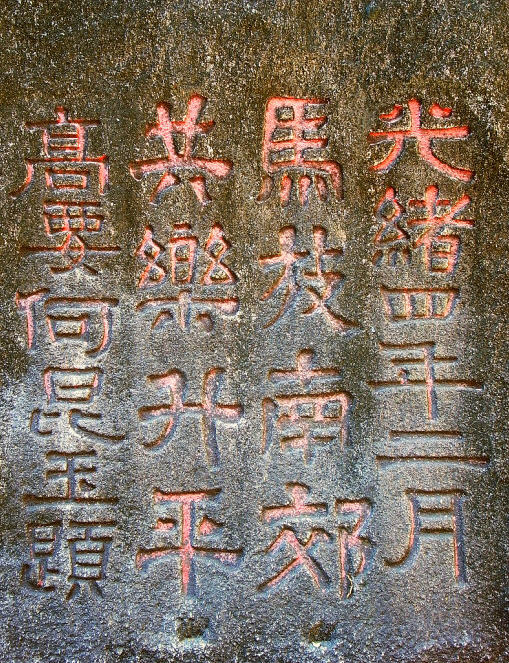 光緒四年二月
馬枝南郊
共樂升平
高要何昆玉題